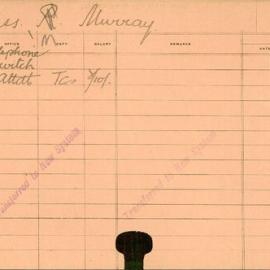 es. R Murray
M
OFFICE DUTY SALARY REMARKS DATE
lephone
witch
Attdt
Transferred to New System
Transferred to New System